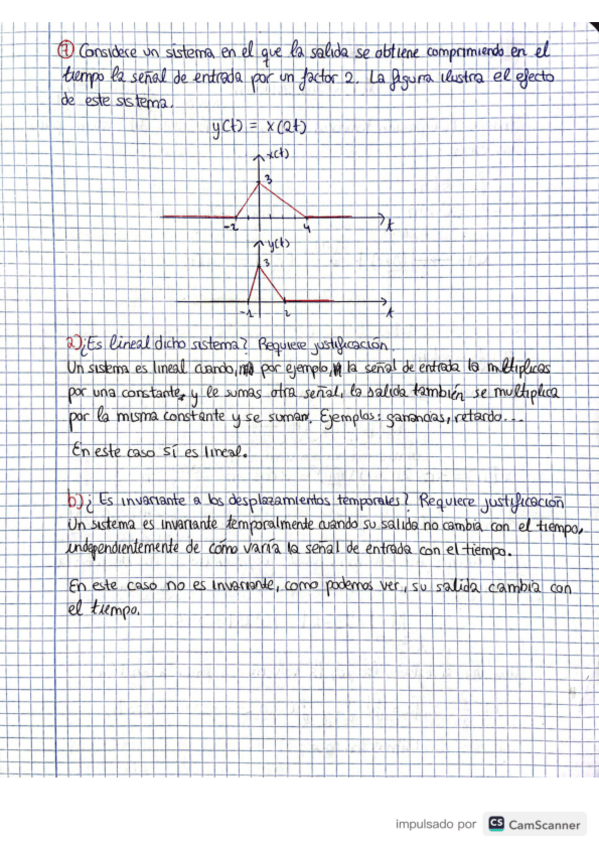 ① Considere un sistema en el que la salida se obtiene comprimiendo en el
tiempo la señal de entrada por un factor 2. La figura ilustra el efecto
de este sistema.
y(t) = x(2t)
x(t)
3
-2
4
t
y(t)
3
-1
2
t
a) ¿Es lineal dicho sistema? Requiere justificación.
Un sistema es lineal cuando, por ejemplo, la señal de entrada la multiplicas
por una constante, y le sumas otra señal, la salida también se multiplica
por la misma constante y se suman. Ejemplos: ganancias, retardo...
En este caso sí es lineal.
b) ¿Es invariante a los desplazamientos temporales? Requiere justificación
Un sistema es invariante temporalmente cuando su salida no cambia con el tiempo,
independientemente de cómo varía la señal de entrada con el tiempo.
En este caso no es invariante, como podemos ver, su salida cambia con
el tiempo.
impulsado por CS CamScanner